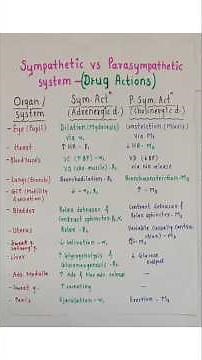 Sympathetic vs Parasympathetic
system - (Drug Actions)
Organ / system
Sym. Actⁿ (Adrenergic d.)
P. Sym. Actⁿ (Cholinergic d.)
- Eye (Pupil) Dilation (Mydriasis) via α₁ Constriction (Miosis) via M₃
- Heart ↑ HR - β₁ ↓ HR - M₂
- Blood vessels VC (↑BP) - α₁ VD (↓BP)
VD (ske muscle) - β₂ via NO release
- Lungs (Bronchi) Bronchodilation - β₂ Bronchoconstriction - M₃
- GIT (Motility & secretion) ↑ - M₃
- Bladder Relax detrusor & Contract detrusor &
Relax sphincter - M₃
- Uterus Relax - β₂ Variable
- Liver ↑ Glycogenolysis & Gluconeogenesis - β₂ ↓ Glucose output
- Ad. Medulla
- Sweat g. ↑ sweating
- Penis Ejaculation - α₁ Erection - M₃